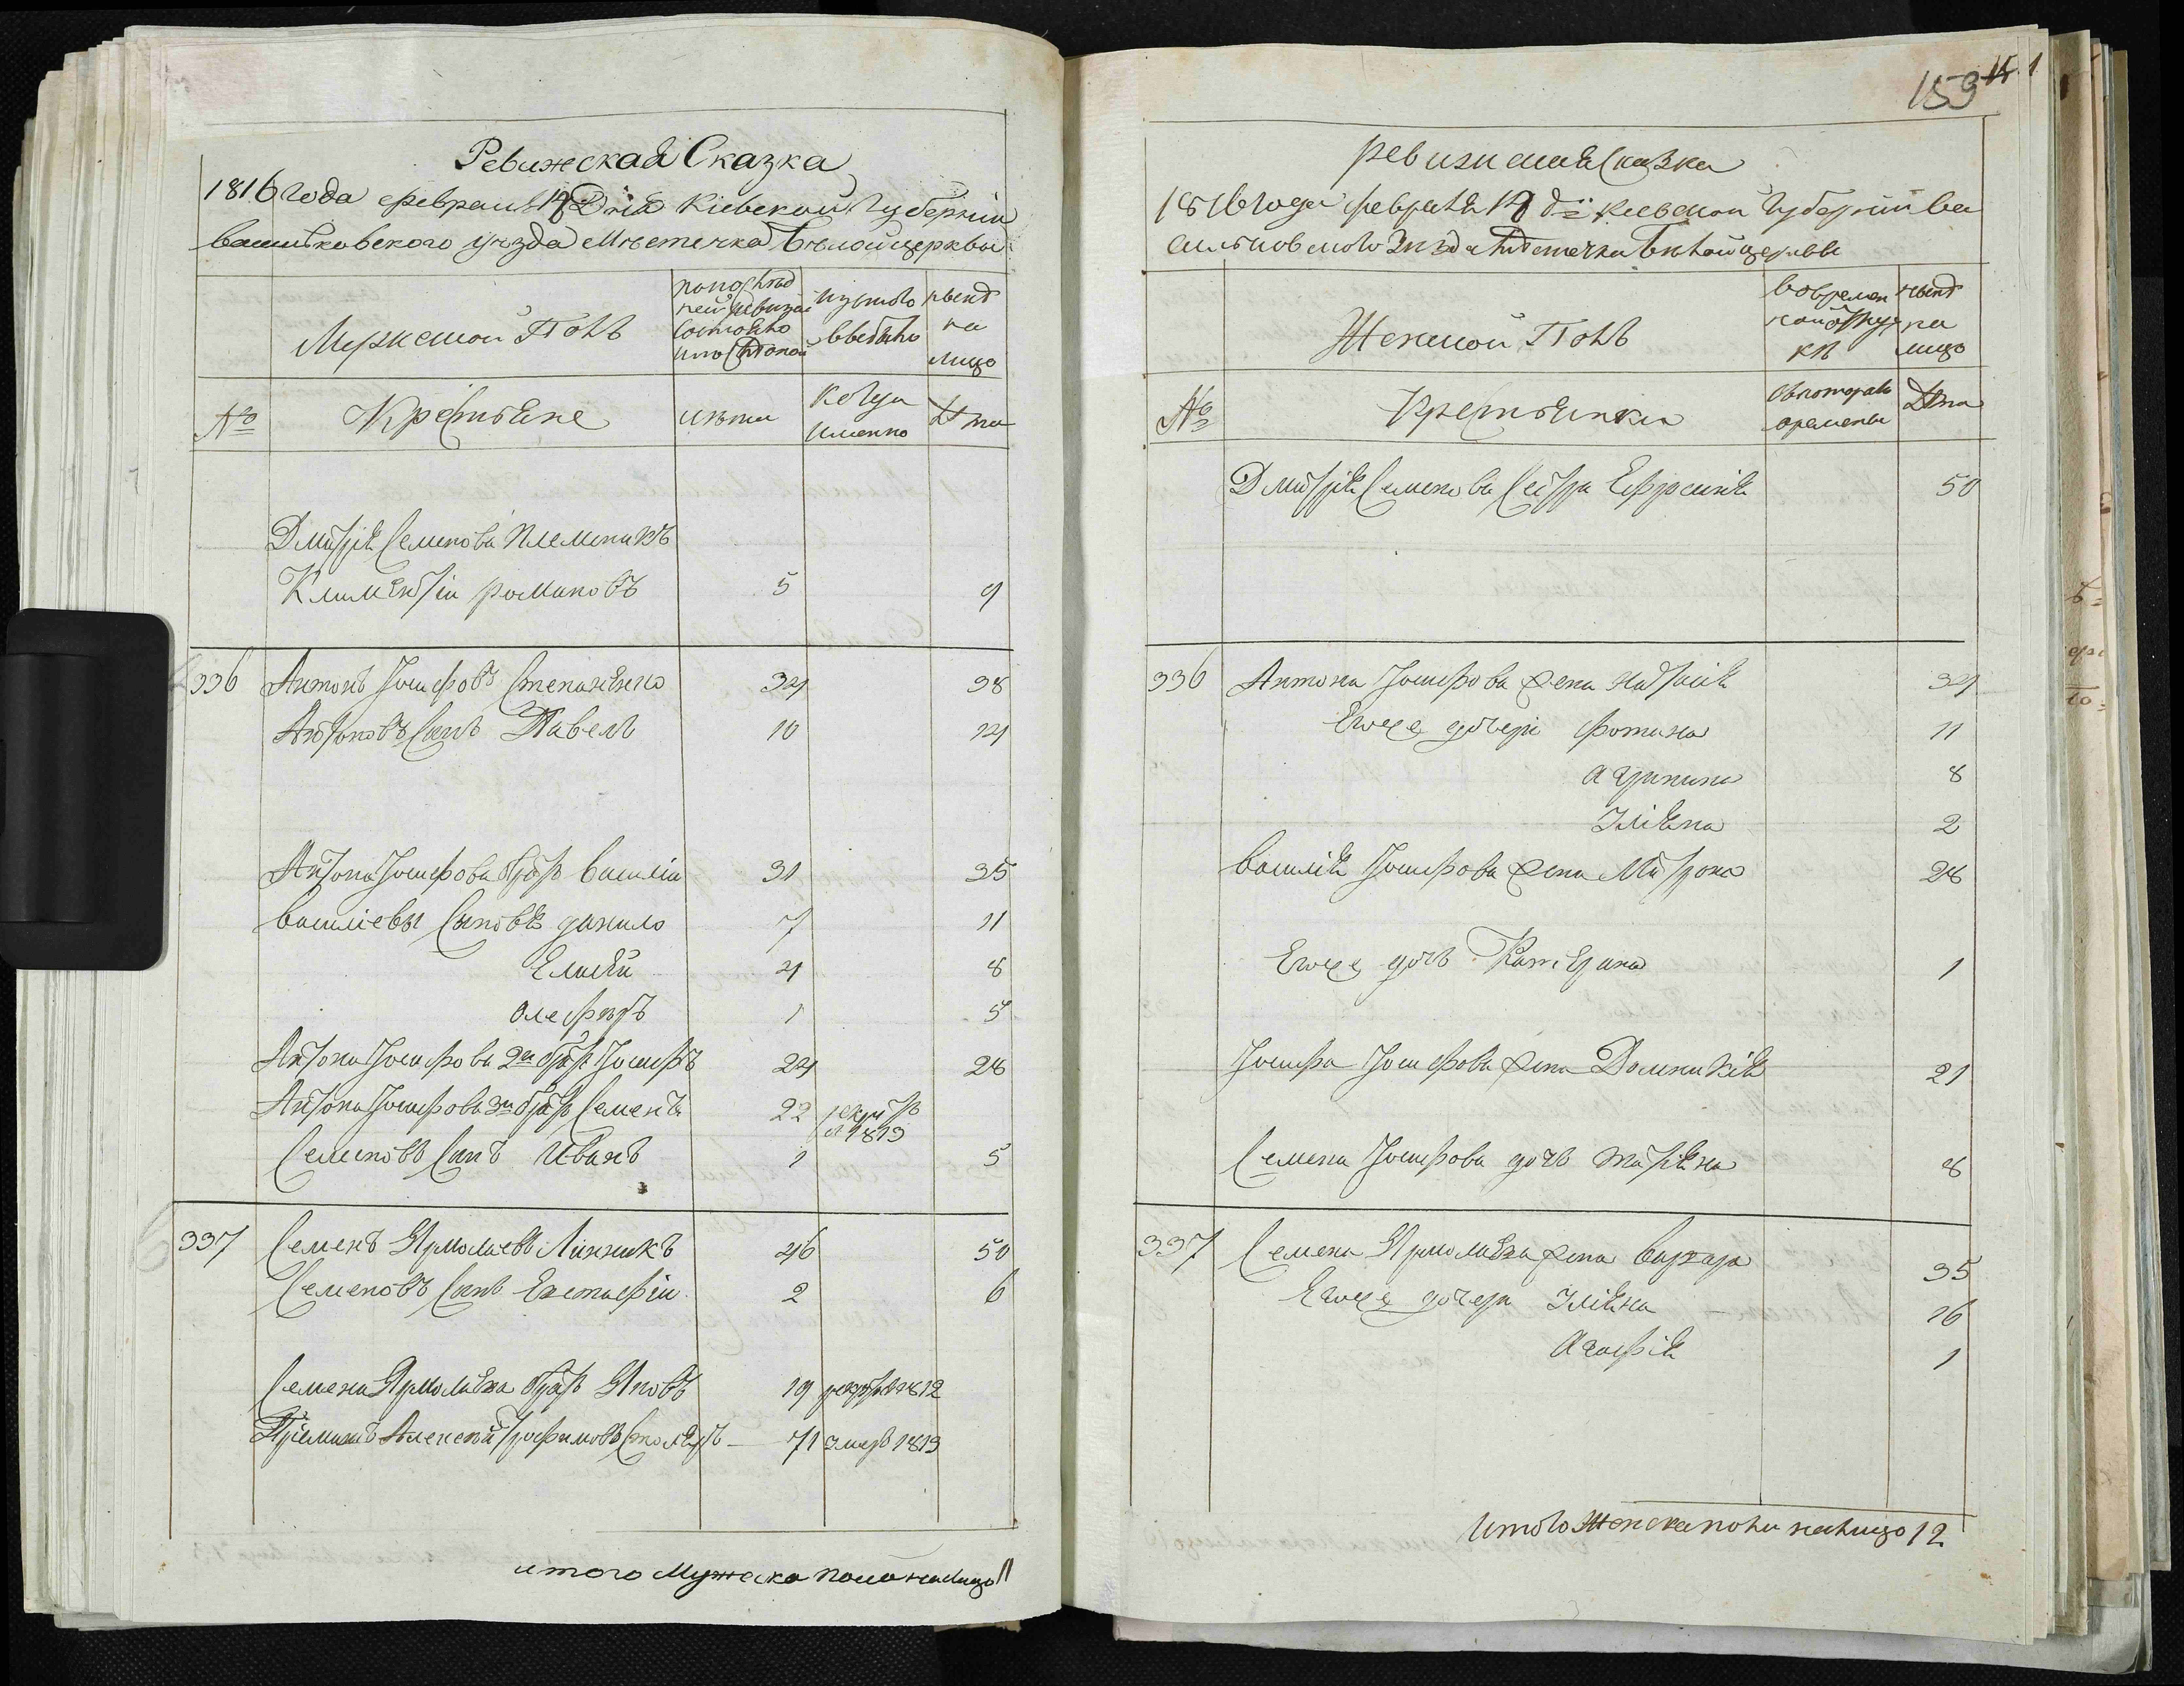 Ревижеская Сказка
1816 года февраля 14 Дня Кіевской Губерніи
васильковского уезда Местечка Белой церкви
Мужеской Полъ
по последней ревизіи состояло и по оной
изъ того выбыло
ныне на лицо
№
Крестьяне
лѣта
когда именно
лѣта
Дмитрія Семенова племеникъ
Климентіи романовъ 5 9
336 Антонъ Іосифовъ Степаненко 34 38
Антоновъ Сынъ Павелъ 10 14
Антона Іосифова братъ василіи 31 35
василіевы Сыновья данило 7 11
Елисей 4 8
олеферъ 1 5
Антона Іосифова 2й братъ Іосифъ 24 28
Антона Іосифова 3й братъ Семенъ 22 рекрутъ 1813
Семеновъ Сынъ Иванъ 1 5
337 Семенъ Ярмолаевъ Линникъ 46 50
Семеновъ Сынъ Евстафіи 2 6
Семена Ярмолаева братъ Яковъ 19 рекрутъ 1812
Пріемышъ Алексей трофимовъ Столяръ 71 умеръ 1813
итого Мужеска пола налицо 11
159
ревизская Сказка
1816 года февраля 14 д: киевской Губерніи Ва
сильковского уезда Местечка Белой церкви
Женской Полъ
во временной отлучке
ныне на лицо
№
Крестьянки
съ котораго времени
Лета
Дмитрія Семенова Сестра Ефросинія 50
336 Антона Іосифова жена Настасія 34
Егоже дочери Фотина 11
агрипина 8
Уліяна 2
василія Іосифова жена Матрона 28
Егоже дочь Катерина 1
Іосифа Іосифова жена Доминикія 21
Семена Іосифова дочь татіяна 8
337 Семена Ярмолаева жена варвара 35
Егоже дочери Уліяна 16
Агафія 1
Итого Женска пола налицо 12